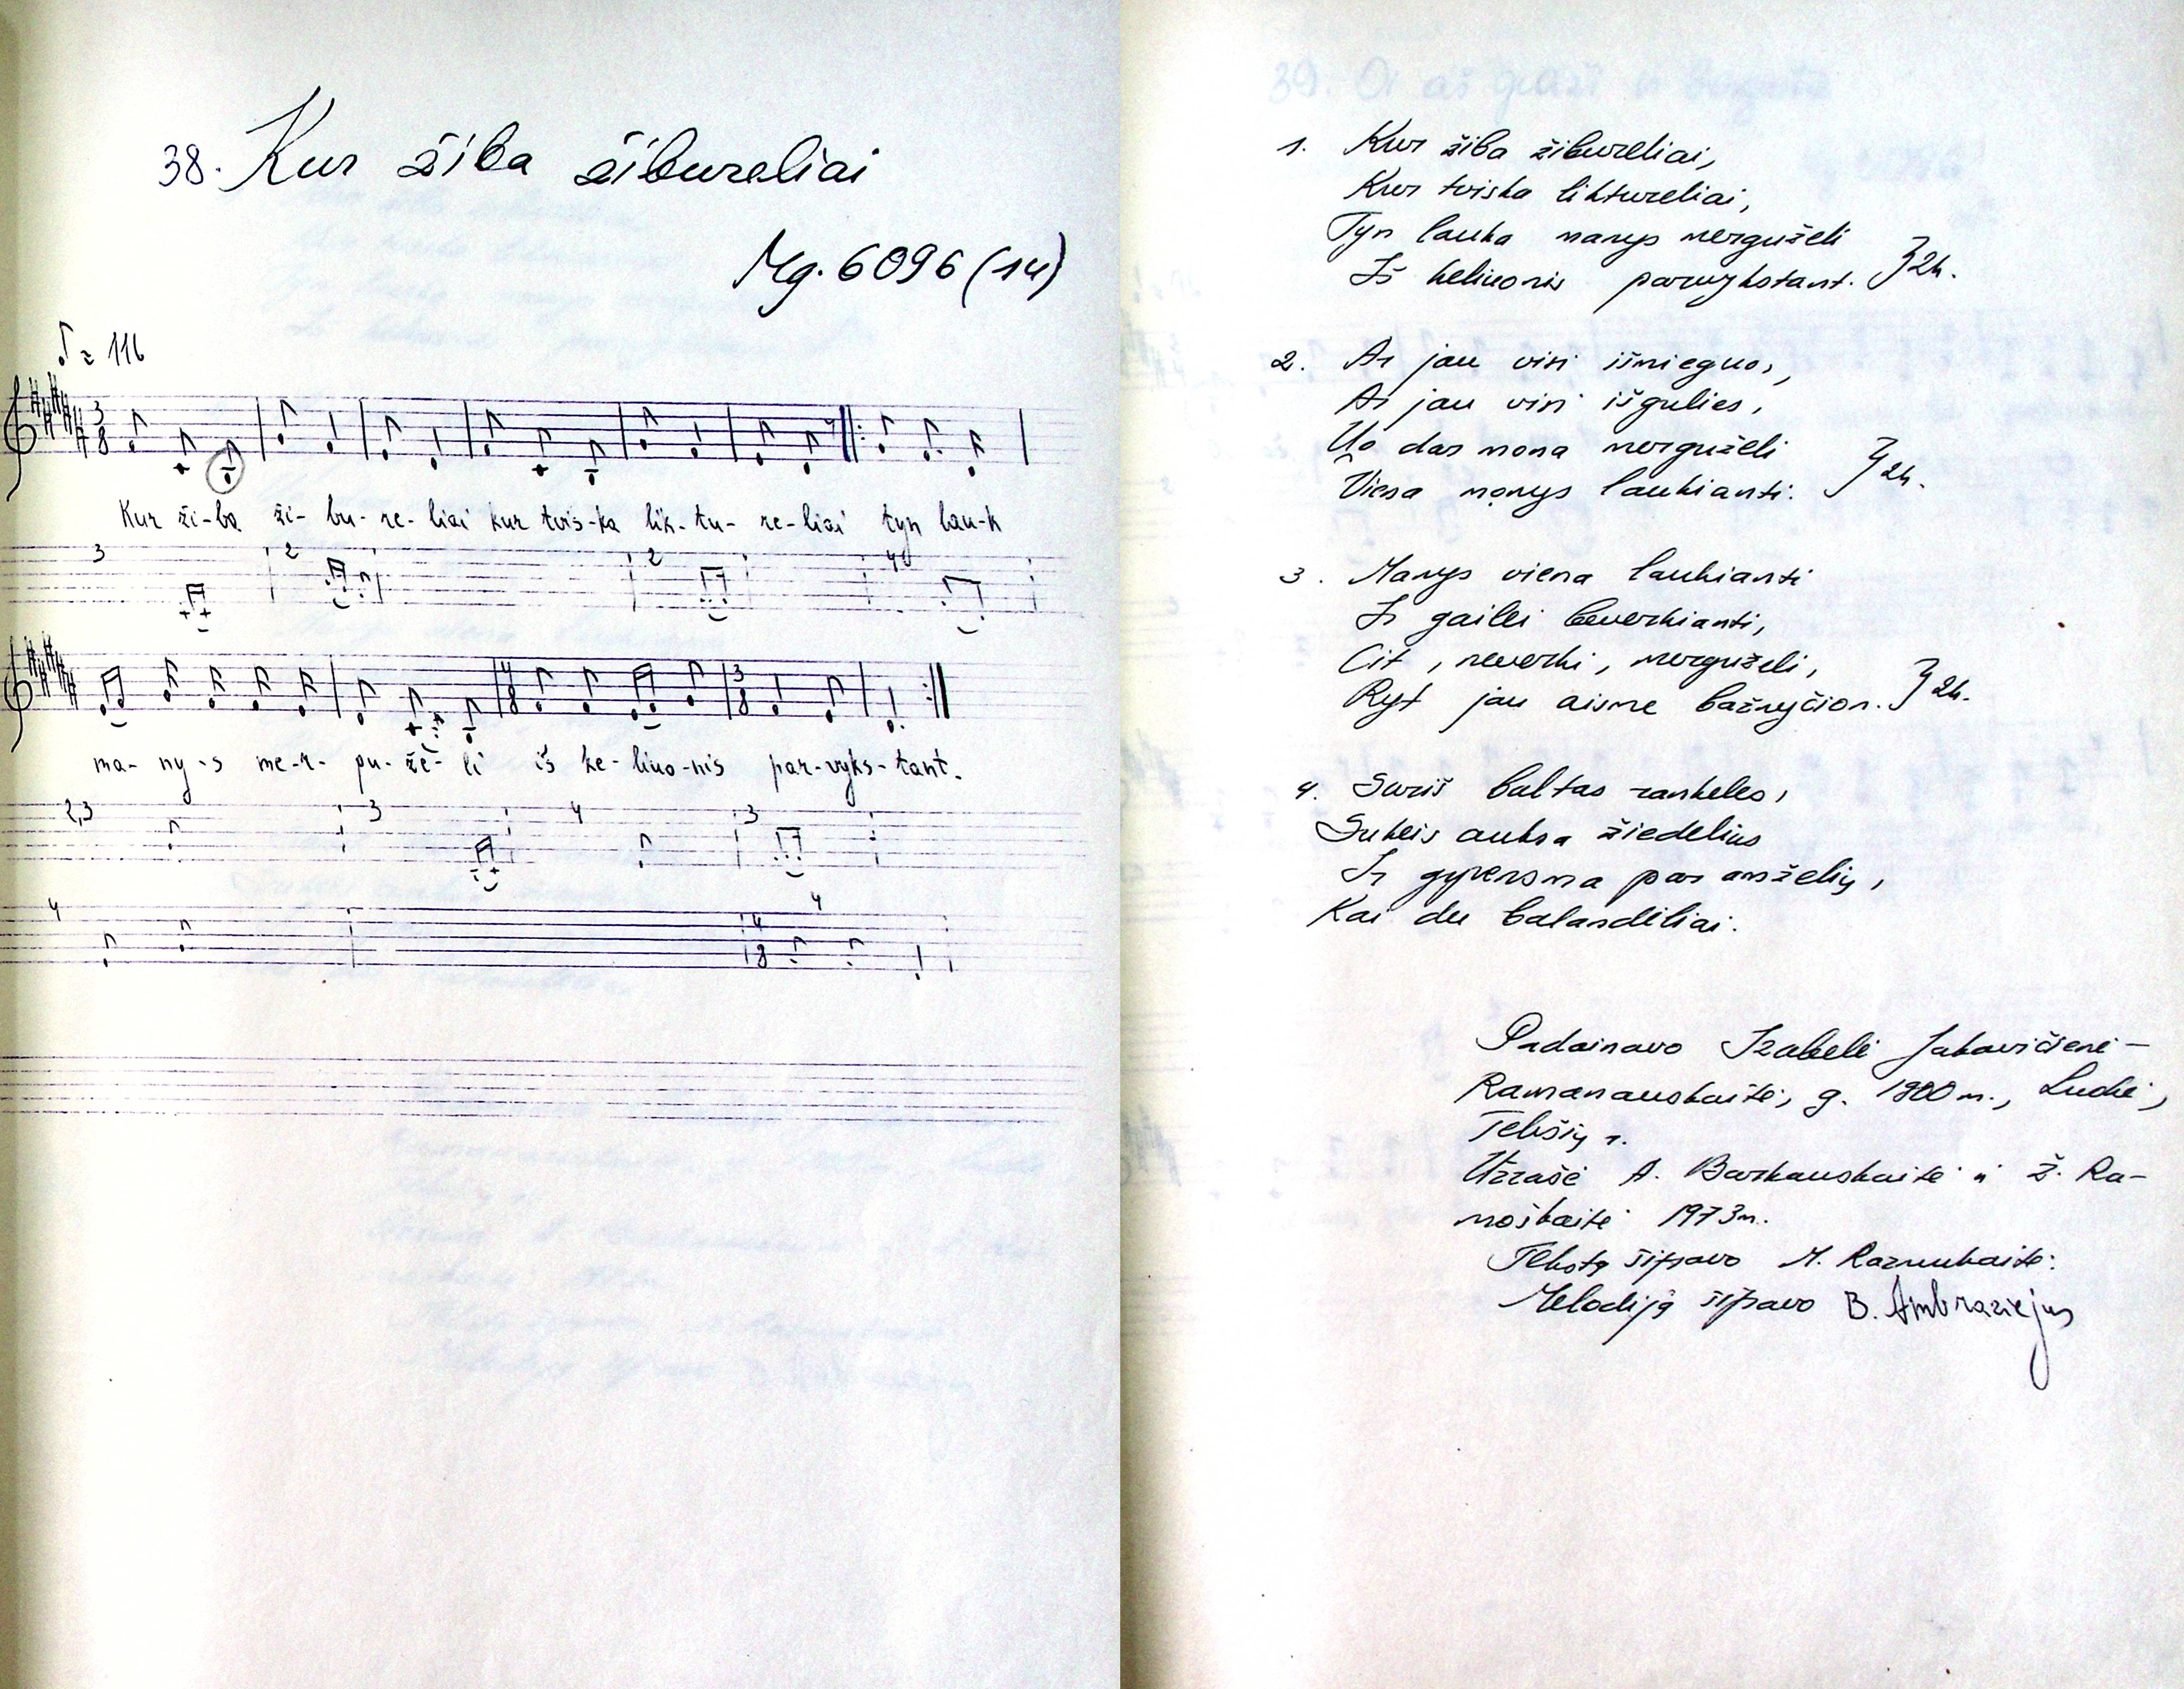 38. Kur žiba žibureliai
Mg. 6096 (14)
♪ = 116
Kur ži-ba ži-bu-re-liai kur tvis-ka lik-tu-re-liai tyn lau-k
3 2 2 4
ma-ny-s me-r-gu-že-li iš ke-liuo-nis par-vyks-tant.
2,3 3 4 3
4 4
1. Kur žiba žibureliai,
Kur tviska liktureliai,
Tyn lauka manys merguželi
Iš keliuonis parvykstant. } 2k.
2. Ar jau visi išmieguo,
Ar jau visi išgulies,
Uo dar mona merguželi
Viena manys laukianti. } 2k.
3. Manys viena laukianti
Ir gailei beverkianti,
Cit, neverki, merguželi,
Ryt jau aisme bažnyčion. } 2k.
4. Suriš baltas rankeles,
Sukeis auksa žiedelius
Ir gyvensma par amželių,
Kai du balandėliai.
Padainavo Izabelė Jakavičienė-
Ramanauskaitė, g. 1900 m.,
Telšių r.
Užrašė A. Barkauskaitė ir Ž. Ra-
moškaitė 1973 m.
Tekstą šifravo M. Razmukaitė.
Melodiją šifravo B. Ambraziejus